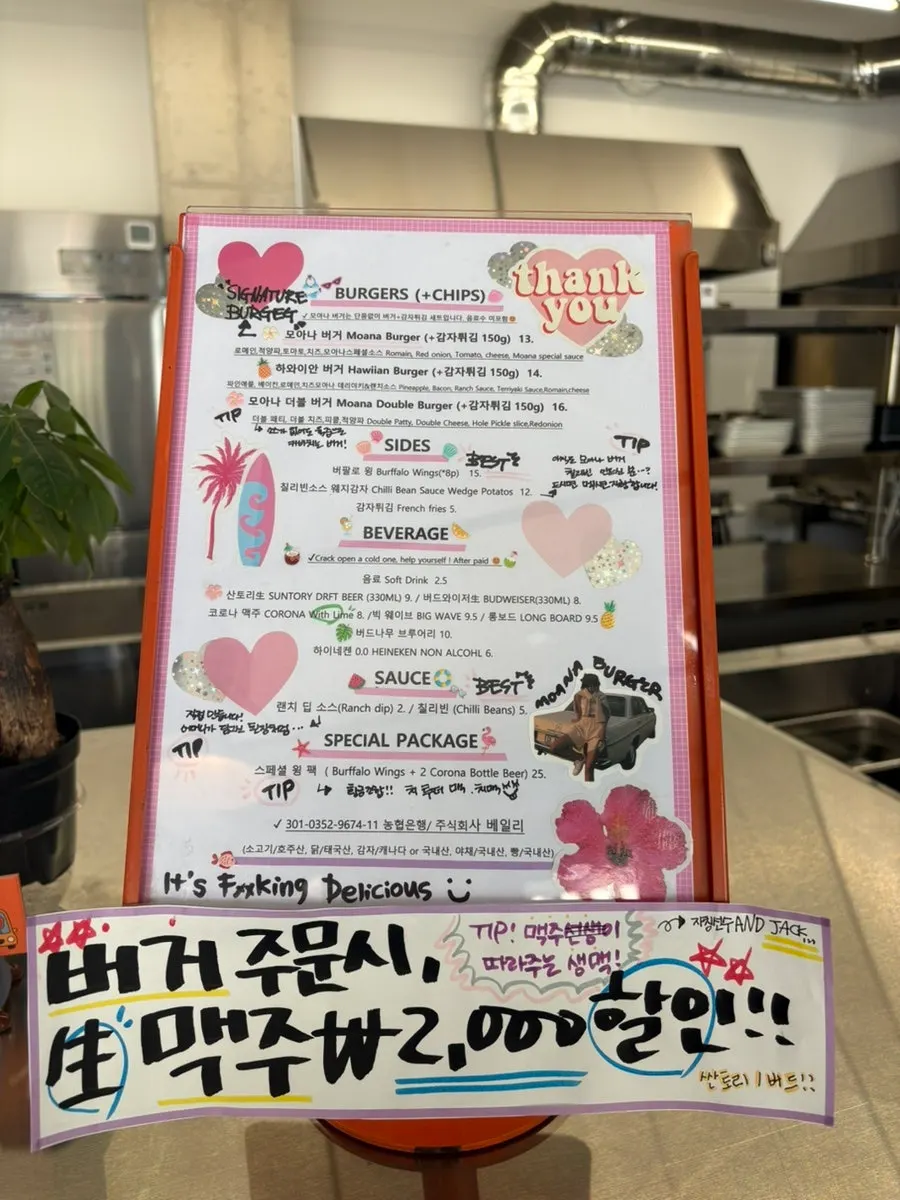 SIGNATURE
BURGEG
BURGERS (+CHIPS)
thank
you
✓ 모아나 버거는 단품없이 버거+감자튀김 세트입니다. 음료수 미포함
모아나 버거 Moana Burger (+감자튀김 150g) 13.
로메인,적양파,토마토,치즈,모아나스페셜소스 Romain, Red onion, Tomato, cheese, Moana special sauce
하와이안 버거 Hawiian Burger (+감자튀김 150g) 14.
파인애플, 베이컨,로메인,치즈모아나 데리야키&랜치소스 Pineapple, Bacon, Ranch Sauce, Terriyaki Sauce,Romain,cheese
모아나 더블 버거 Moana Double Burger (+감자튀김 150g) 16.
TIP
더블 패티, 더블 치즈,피클,적양파 Double Patty, Double Cheese, Hole Pickle slice,Redonion
SIDES
BEST
TIP
버팔로 윙 Burffalo Wings(*8p) 15.
칠리빈소스 웨지감자 Chilli Bean Sauce Wedge Potatos 12.
감자튀김 French fries 5.
BEVERAGE
✓Crack open a cold one, help yourself ! After paid
음료 Soft Drink 2.5
산토리生 SUNTORY DRFT BEER (330ML) 9. / 버드와이저生 BUDWEISER(330ML) 8.
코로나 맥주 CORONA With Lime 8. /빅 웨이브 BIG WAVE 9.5 / 롱보드 LONG BOARD 9.5
버드나무 브루어리 10.
하이네켄 0.0 HEINEKEN NON ALCOHL 6.
SAUCE
BEST
MOANA BURGER
랜치 딥 소스(Ranch dip) 2. / 칠리빈 (Chilli Beans) 5.
직접 만듭니다!
TIP
SPECIAL PACKAGE
스페셜 윙 팩 ( Burffalo Wings + 2 Corona Bottle Beer) 25.
TIP
✓ 301-0352-9674-11 농협은행/ 주식회사 베일리
(소고기/호주산, 닭/태국산, 감자/캐나다 or 국내산, 야채/국내산, 빵/국내산)
It's Fxxking Delicious
버거 주문시,
TIP! 맥주선생이
따라주는 생맥!
AND JACK
生 맥주 ₩2,000 할인!!
싼토리 / 버드!?